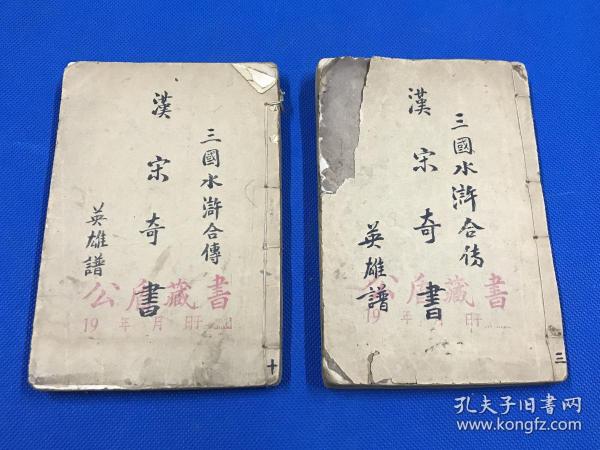 三國水滸合傳
漢宋奇書
英雄譜
書藏唐公
19 年 月 日
十
三國水滸合传
漢宋奇書
英雄譜
書藏唐公
19 年 月 日
三
孔夫子旧书网
www.kongfz.com